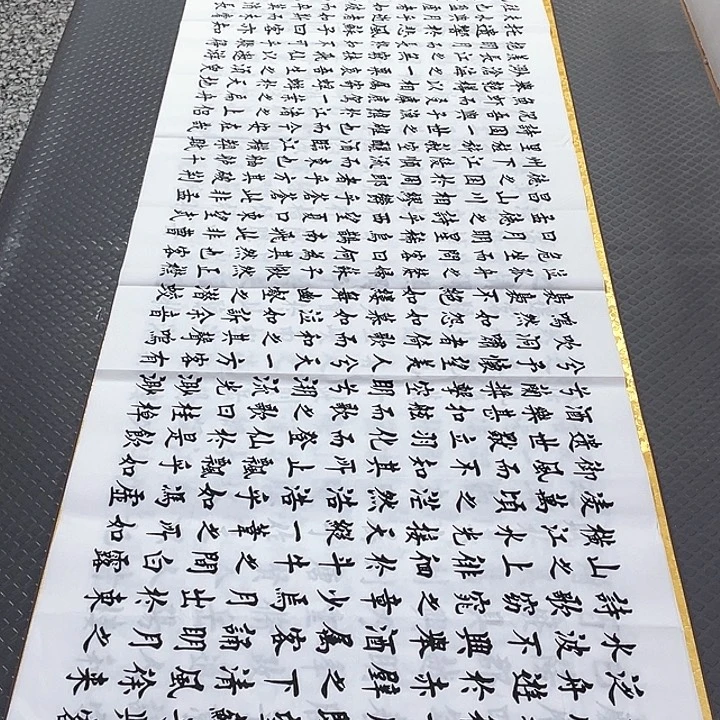 泛舟遊於赤壁之下清風徐來
水波不興舉酒屬客誦明月之
詩歌窈窕之章少焉月出於東
山之上徘徊於斗牛之間白露
橫江水光接天縱一葦之所如
凌萬頃之茫然浩浩乎如馮虛
御風而不知其所止飄飄乎如
遺世獨立羽化而登仙於是飲
酒樂甚扣舷而歌之歌曰桂棹
兮蘭槳擊空明兮泝流光渺渺
兮予懷望美人兮天一方客有
吹洞簫者倚歌而和之其聲嗚
嗚然如怨如慕如泣如訴餘音
嫋嫋不絕如縷舞幽壑之潛蛟
泣孤舟之嫠婦蘇子愀然正襟
危坐而問客曰何為其然也客
曰月明星稀烏鵲南飛此非曹
孟德之詩乎西望夏口東望武
昌山川相繆鬱乎蒼蒼此非孟
德之困於周郎者乎方其破荊
州下江陵順流而東也舳艫千
里旌旗蔽空釃酒臨江橫槊賦
詩固一世之雄也而今安在哉
況吾與子漁樵於江渚之上侶
魚蝦而友麋鹿駕一葉之扁舟
舉匏樽以相屬寄蜉蝣於天地
渺滄海之一粟哀吾生之須臾
羨長江之無窮挾飛仙以遨遊
抱明月而長終知不可乎驟得
託遺響於悲風蘇子曰客亦知
夫水與月乎逝者如斯而未嘗